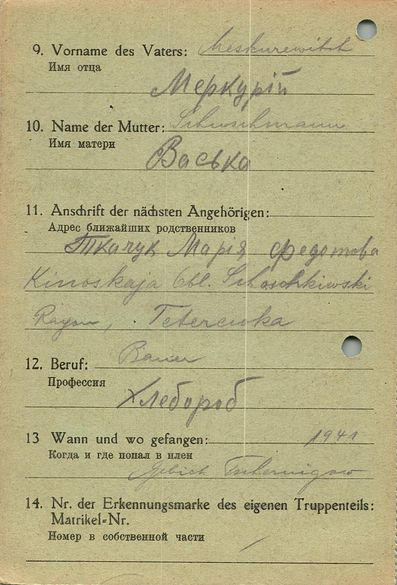 9. Vorname des Vaters: Meskurewitsch
Имя отца
Меркурій
10. Name der Mutter:
Имя матери
Васька
11. Anschrift der nächsten Angehörigen:
Адрес ближайших родственников
Ткачук Марія Федотова
Kinoskaja Obl. Schaschkiwski
Rayon,
12. Beruf: Bauer
Профессия
Хлебороб
13 Wann und wo gefangen: 1941
Когда и где попал в плен
Gebiet
14. Nr. der Erkennungsmarke des eigenen Truppenteils:
Matrikel-Nr.
Номер в собственной части